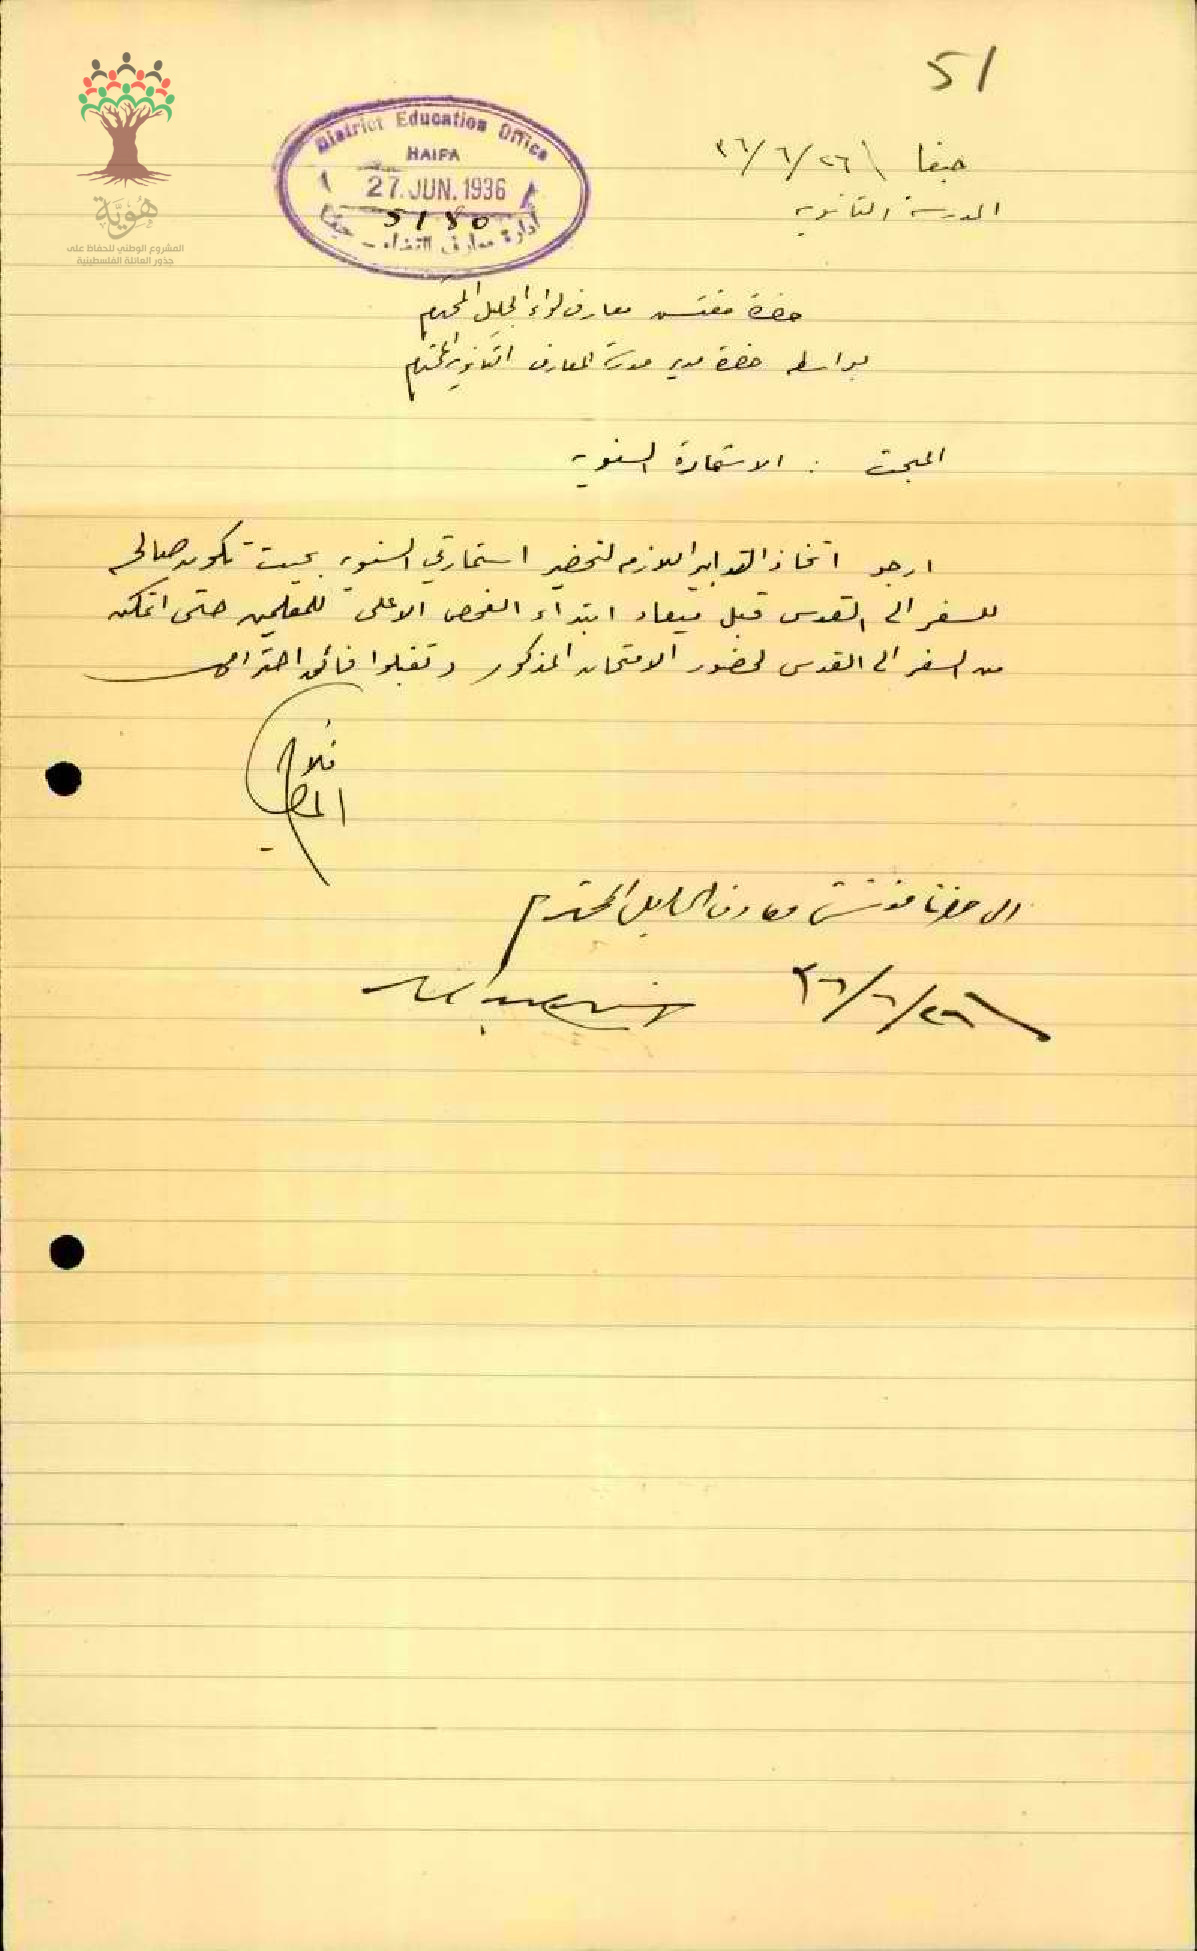 51
هوية
المشروع الوطني للحفاظ على
جذور العائلة الفلسطينية
District Education Office
HAIFA
27. JUN. 1936
5180
ادارة معارف القضاء - حيفا
حيفا ٣٦/٦/٢٦
المدرسة الثانوية
حضرة مفتش معارف لواء الجليل المحترم
بواسطة حضرة مدير مدرسة المعارف الثانوية المحترم
المبحث : الاستمارة السنوية
ارجو اتخاذ التدابير اللازمة لتحضير استمارتي السنوية بحيث تكون صالحة
للسفر الى القدس قبل ميعاد ابتداء الفحص الاعلى للمعلمين حتى اتمكن
من السفر الى القدس لحضور الامتحان المذكور وتفضلوا فائق احترامي
فلاح
الى حضرة مفتش معارف الجليل المحترم
٣٦/٦/٢٦